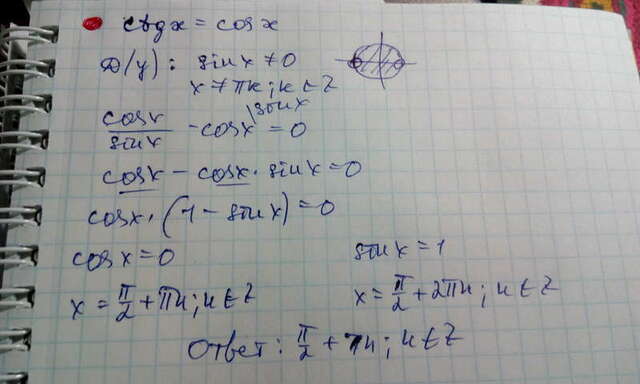 ctgx = cosx
D(y): sinx ≠ 0
x ≠ πк; к ∈ Z
cosx/sinx - cosx \sinx = 0
cosx - cosx · sinx = 0
cosx · (1 - sinx) = 0
cosx = 0 sinx = 1
x = π/2 + πн; н ∈ Z x = π/2 + 2πн; н ∈ Z
Ответ: π/2 + πн; н ∈ Z